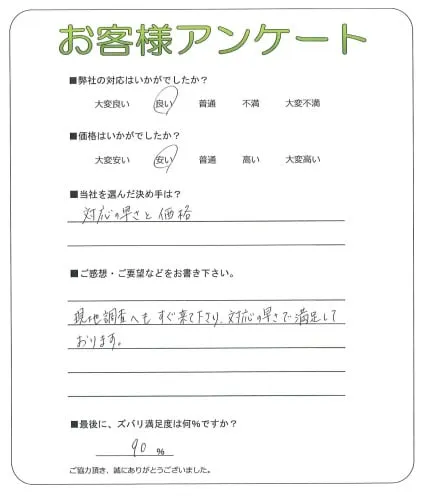 お客様アンケート
■弊社の対応はいかがでしたか？
大変良い 良い 普通 不満 大変不満
■価格はいかがでしたか？
大変安い 安い 普通 高い 大変高い
■当社を選んだ決め手は？
対応の早さと価格
■ご感想・ご要望などをお書き下さい。
現地調査へもすぐ来て下さり、対応の早さで満足して
おります。
■最後に、ズバリ満足度は何％ですか？
90 ％
ご協力頂き、誠にありがとうございました。